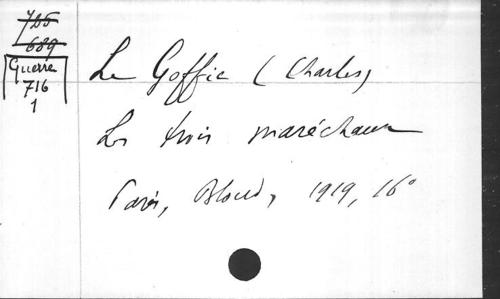 725
689
Guerre
716
1
Le Goffic (Charles)
Les trois maréchaux
Paris, Bloud, 1919, 16°